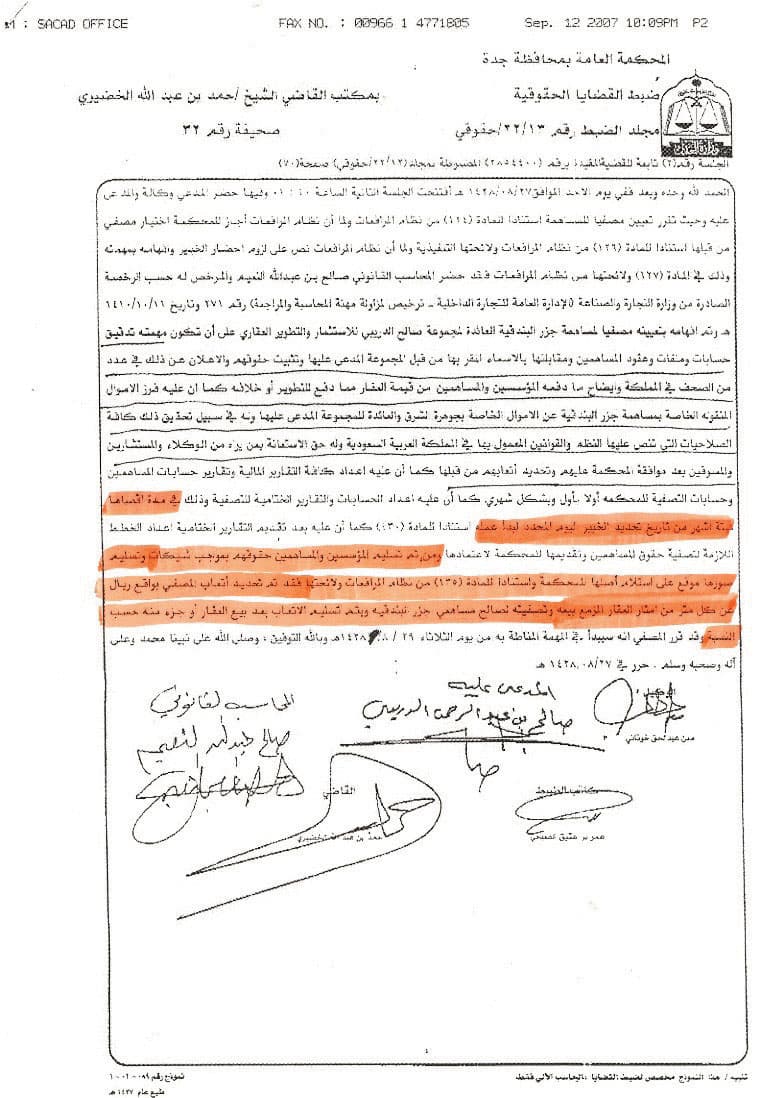 M : SACAD OFFICE FAX NO. : 00966 1 4771805 Sep. 12 2007 10:09PM P2
المحكمة العامة بمحافظة جدة
ضبط القضايا الحقوقية بمكتب القاضي الشيخ/حمد بن عبد الله الخضيري
مجلد الضبط رقم ٢٢/١٣/حقوقي صحيفة رقم ٣٢
الجلسة رقم(٢) تابعة للقضية المقيدة برقم (٢٨٥٤٤٠٠) المضبوطة بمجلد(٢٢/١٢/حقوقي) صفحة(٧٠)
الحمد لله وحده وبعد ففي يوم الاحد الموافق١٤٢٨/٠٨/٢٧ هـ افتتحت الجلسة الثانية الساعة ٤٠ : ٠١ وفيها حضر المدعي وكالة والمدعى
عليه وحيث تقرر تعيين مصفيا للمساهمة استنادا للمادة (١٢٤) من نظام المرافعات ولما أن نظام المرافعات أجاز للمحكمة اختيار مصفي
من قبلها استنادا للمادة (١٢٦) من نظام المرافعات ولائحتها التنفيذية ولما أن نظام المرافعات نص على لزوم احضار الخبير وافهامه بمهمته
وذلك في المادة (١٢٧) ولائحتها من نظام المرافعات فقد حضر المحاسب القانوني صالح بن عبدالله النعيم والمرخص له حسب الرخصة
الصادرة من وزارة التجارة والصناعة (الإدارة العامة للتجارة الداخلية – ترخيص لمزاولة مهنة المحاسبة والمراجعة) رقم ٢٧١ وتاريخ ١٤١٠/١٠/١١
هـ وتم افهامه بتعيينه مصفيا لمساهمة جزر البندقية العائدة لمجموعة صالح الدريبي للاستثمار والتطوير العقاري على أن تكون مهمته تدقيق
حسابات وملفات وعقود المساهمين ومقابلتها بالاسماء المقر بها من قبل المجموعة المدعى عليها وتثبيت حقوقهم والاعلان عن ذلك في عدد
من الصحف في المملكة وايضاح ما دفعه المؤسسين والمساهمين من قيمة العقار مما دفع للتطوير أو خلافه كما ان عليه فرز الاموال
المنقوله الخاصة بمساهمة جزر البندقية عن الاموال الخاصة بجوهرة الشرق والعائدة للمجموعة المدعى عليها وله في سبيل تحقيق ذلك كافة
الصلاحيات التي تنص عليها النظم والقوانين المعمول بها في المملكة العربية السعودية وله حق الاستعانة بمن يره من الوكلاء والمستشارين
والمسوقين بعد موافقة المحكمة عليهم وتحديد أتعابهم من قبلها كما أن عليه اعداد كافة التقارير المالية وتقارير حسابات المساهمين
وحسابات التصفية للمحكمه أولا بأول وبشكل شهري كما أن عليه اعداد الحسابات والتقارير الختامية للتصفية وذلك في مدة اقصاها
ستة اشهر من تاريخ تحديد الخبير لليوم المحدد لبدأ عمله استنادا للمادة (٤٣٠) كما أن عليه بعد تقديم التقارير الختامية اعداد الخطط
اللازمة لتصفية حقوق المساهمين وتقديمها للمحكمة لاعتمادها ومن تم تسليم المؤسسين والمساهمين حقوقهم بموجب شيكات وتسليم
صورها موقع على استلام أصلها للمحكمة واستنادا للمادة (١٣٥) من نظام المرافعات ولائحتها فقد تم تحديد أتعاب المصفي بواقع ريال
عن كل متر من امتار العقار المزمع بيعه وتصفيته لصالح مساهمي جزر البندقيه ويتم تسليم الاتعاب بعد بيع العقار أو جزء منه حسب
النسبة وقد قرر المصفي انه سيبدأ في المهمة المناطة به من يوم الثلاثاء ٢٩ / ٨/ ١٤٢٨هـ وبالله التوفيق ، وصلى الله على نبينا محمد وعلى
آله وصحبه وسلم . حرر في ١٤٢٨/٠٨/٢٧ هـ
الوكيل المدعى عليه المحاسب القانوني
صالح بن عبد الرحمن الدريبي صالح عبدالله النعيم
كاتب الضبط القاضي
حمد بن عبد الله الخضيري
تنبيه / هذا النموذج مخصص لضبط القضايا بالحاسب الآلي فقط نموذج رقم ٠٨٩-٠١-١٠
طبع عام ١٤٢٧ هـ